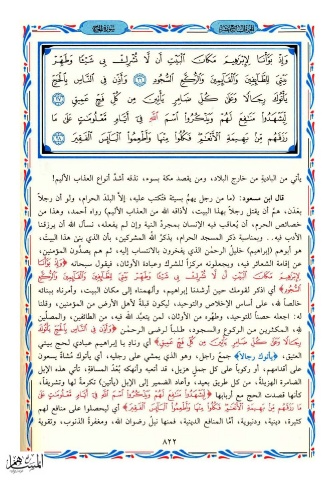 وَإِذْ بَوَّأْنَا لِإِبْرَٰهِيمَ مَكَانَ ٱلْبَيْتِ أَن لَّا تُشْرِكْ بِى شَيْـًٔا وَطَهِّرْ
بَيْتِىَ لِلطَّآئِفِينَ وَٱلْقَآئِمِينَ وَٱلرُّكَّعِ ٱلسُّجُودِ ﴿٢٦﴾ وَأَذِّن فِى ٱلنَّاسِ بِٱلْحَجِّ
يَأْتُوكَ رِجَالًا وَعَلَىٰ كُلِّ ضَامِرٍ يَأْتِينَ مِن كُلِّ فَجٍّ عَمِيقٍ ﴿٢٧﴾
لِّيَشْهَدُوا۟ مَنَـٰفِعَ لَهُمْ وَيَذْكُرُوا۟ ٱسْمَ ٱللَّهِ فِىٓ أَيَّامٍ مَّعْلُومَـٰتٍ عَلَىٰ مَا
رَزَقَهُم مِّنۢ بَهِيمَةِ ٱلْأَنْعَـٰمِ فَكُلُوا۟ مِنْهَا وَأَطْعِمُوا۟ ٱلْبَآئِسَ ٱلْفَقِيرَ ﴿٢٨﴾
يأتي من البادية من خارج البلاد، ومن يقصد مكة بسوء، نذقه أشدَّ أنواع العذاب الأليم!
قال ابن مسعود: (ما من رجل يهمُّ بسيئة فتُكتب عليه، إلا البلد الحرام، ولو أن رجلاً
بعدن، همَّ أن يقتل رجلاً بهذا البيت، لأذاقه الله من العذاب الأليم) رواه أحمد، وهذا من
خصائص الحرم، أن يُعاقب فيه الإنسان بمجرد النية وإن لم يفعله، نسأل الله أن يرزقنا
الأدب فيه.. وبمناسبة ذكر المسجد الحرام، يذكّر الله المشركين، بأن الذي بنى هذا البيت،
هو أبوهم (إبراهيم) خليلُ الرحمن الذي يفخرون بالانتساب إليه، ثم هم يصدُّون المؤمنين،
عن إقامة الشعائر فيه، ويجعلونه مركزاً للشرك وعبادة الأوثان، فيقول سبحانه ﴿وَإِذْ بَوَّأْنَا
لِإِبْرَٰهِيمَ مَكَانَ ٱلْبَيْتِ أَن لَّا تُشْرِكْ بِى شَيْـًٔا وَطَهِّرْ بَيْتِىَ لِلطَّآئِفِينَ وَٱلْقَآئِمِينَ وَٱلرُّكَّعِ
ٱلسُّجُودِ﴾ أي اذكر لقومك حين أرشدنا إبراهيم، وألهمناه إلى مكان البيت، وأمرناه ببنائه
خالصاً لله، على أساس الإخلاص والتوحيد، ليكون قبلةً لأهل الأرض من المؤمنين، وقلنا
له: اجعله حصناً للتوحيد، وطهِّره من الأوثان، لمن يتعبَّد لله فيه، من الطائفين، والمصلِّين
لله، المكثرين من الركوع والسجود، طلباً لرضى الرحمن ﴿وَأَذِّن فِى ٱلنَّاسِ بِٱلْحَجِّ يَأْتُوكَ
رِجَالًا وَعَلَىٰ كُلِّ ضَامِرٍ يَأْتِينَ مِن كُلِّ فَجٍّ عَمِيقٍ﴾ أي ونادِ يا إبراهيم عبادي لحج بيتي
العتيق، ﴿يأتوك رجالاً﴾ جمعُ راجل، وهو الذي يمشي على رجليه، أي يأتوك مُشاةً يسعون
على أقدامهم، أو ركوباً على كل جملٍ هزيل، قد أتعبه وأنهكه بُعْدُ المسافة، تأتي هذه الإبل
الضامرة الهزيلةُ، من كل طريق بعيد، وأعاد الضمير إلى الإبل (يأتين) تكرمةً لها وتشريفاً،
كأنها قصدت الحج مع أربابها ﴿لِّيَشْهَدُوا۟ مَنَـٰفِعَ لَهُمْ وَيَذْكُرُوا۟ ٱسْمَ ٱللَّهِ فِىٓ أَيَّامٍ مَّعْلُومَـٰتٍ عَلَىٰ
مَا رَزَقَهُم مِّنۢ بَهِيمَةِ ٱلْأَنْعَـٰمِ فَكُلُوا۟ مِنْهَا وَأَطْعِمُوا۟ ٱلْبَآئِسَ ٱلْفَقِيرَ﴾ أي ليحصلوا على منافع لهم
كثيرة، دينية، ودنيوية، أمَّا المنافع الدينية، فمنها نيلُ رضوان الله، ومغفرةُ الذنوب، وتقوية
٨٢٢